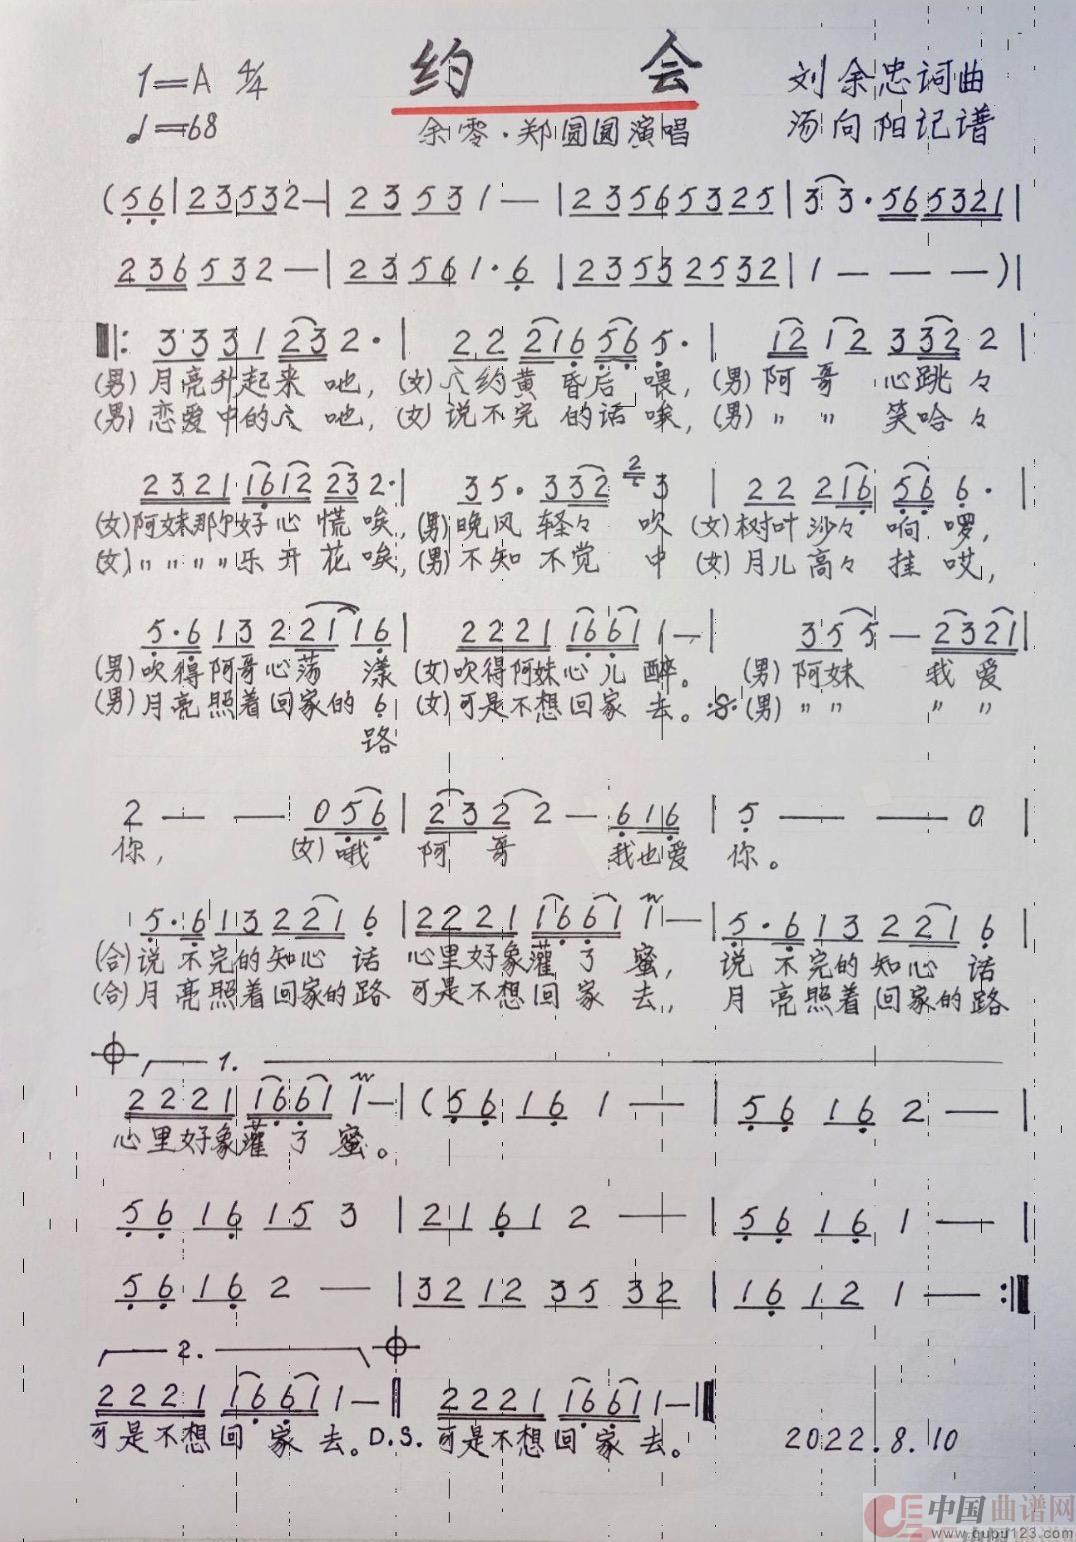 1=A 4/4 约 会 刘余忠词曲
♩=68 余零·郑圆圆演唱 汤向阳记谱
(56|23532—|23531—|2356532 5|33·565321|
236532—|23561·6|23532532|1———)|
‖:3331232·|22216565·|12123322|
(男)月亮升起来吔,(女)人约黄昏后喂,(男)阿哥心跳々
(男)恋爱中的人吔,(女)说不完的话噢,(男)〃〃笑哈々
23211612232·|35·33223|22216566·|
(女)阿妹那个好心慌唉,(男)晚风轻々吹(女)树叶沙々响啰,
(女)〃〃〃〃乐开花唉,(男)不知不觉中(女)月儿高々挂哎,
5·61322116|222116611—|355—2321|
(男)吹得阿哥心荡漾(女)吹得阿妹心儿醉。(男)阿妹我爱
(男)月亮照着回家的6(女)可是不想回家去。:S:(男)〃〃〃〃
路
2——056|2322—616|5——0|
你,(女)哦阿哥我也爱你。
5·6132216|222116611—|5·6132216
(合)说不完的知心话心里好象灌了蜜,说不完的知心话
(合)月亮照着回家的路可是不想回家去,,月亮照着回家的路
1.
222116611—|(56161—|56162—|
心里好象灌了蜜。
5616153|21612—|56161—|
56162—|32123532|16121—:‖
2.
222116611—‖222116611—‖
可是不想回家去。D.S.可是不想回家去。 2022.8.10
中国曲谱网
www.qupu123.com